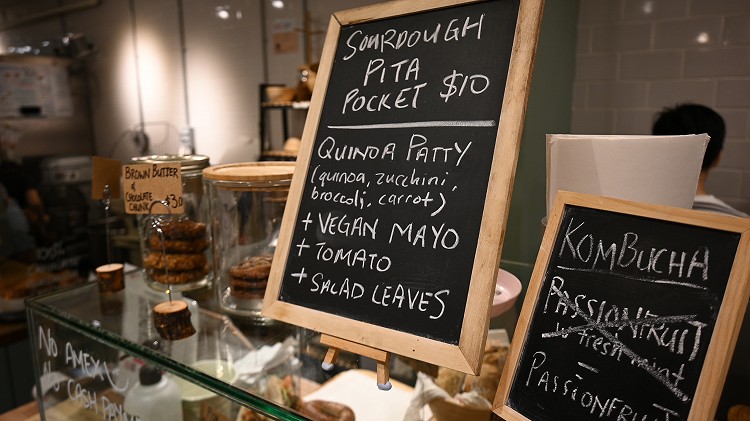 SOURDOUGH
PITA
POCKET $10
QUINOA PATTY
(quinoa, zucchini,
broccoli, carrot)
+ VEGAN MAYO
+ TOMATO
+ SALAD LEAVES
BROWN BUTTER
&
CHOCOLATE
CHUNK
KOMBUCHA
PASSIONFRUIT
w fresh mint
PASSIONFRUIT
NO AMEX
NO CASH